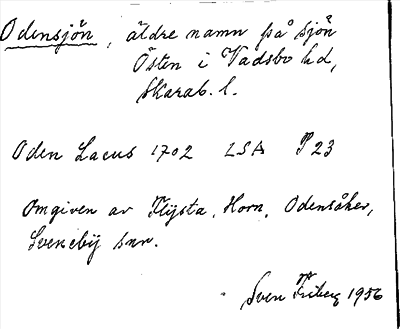 Odensjön, äldre namn på sjön
Östen i Vadsbo hd,
Skarab. l.
Oden Lacus 1702 LSA P 23
Omgiven av Flijsta, Horn, Odensåker,
Svenebij snr.
Sven Friberg 1956